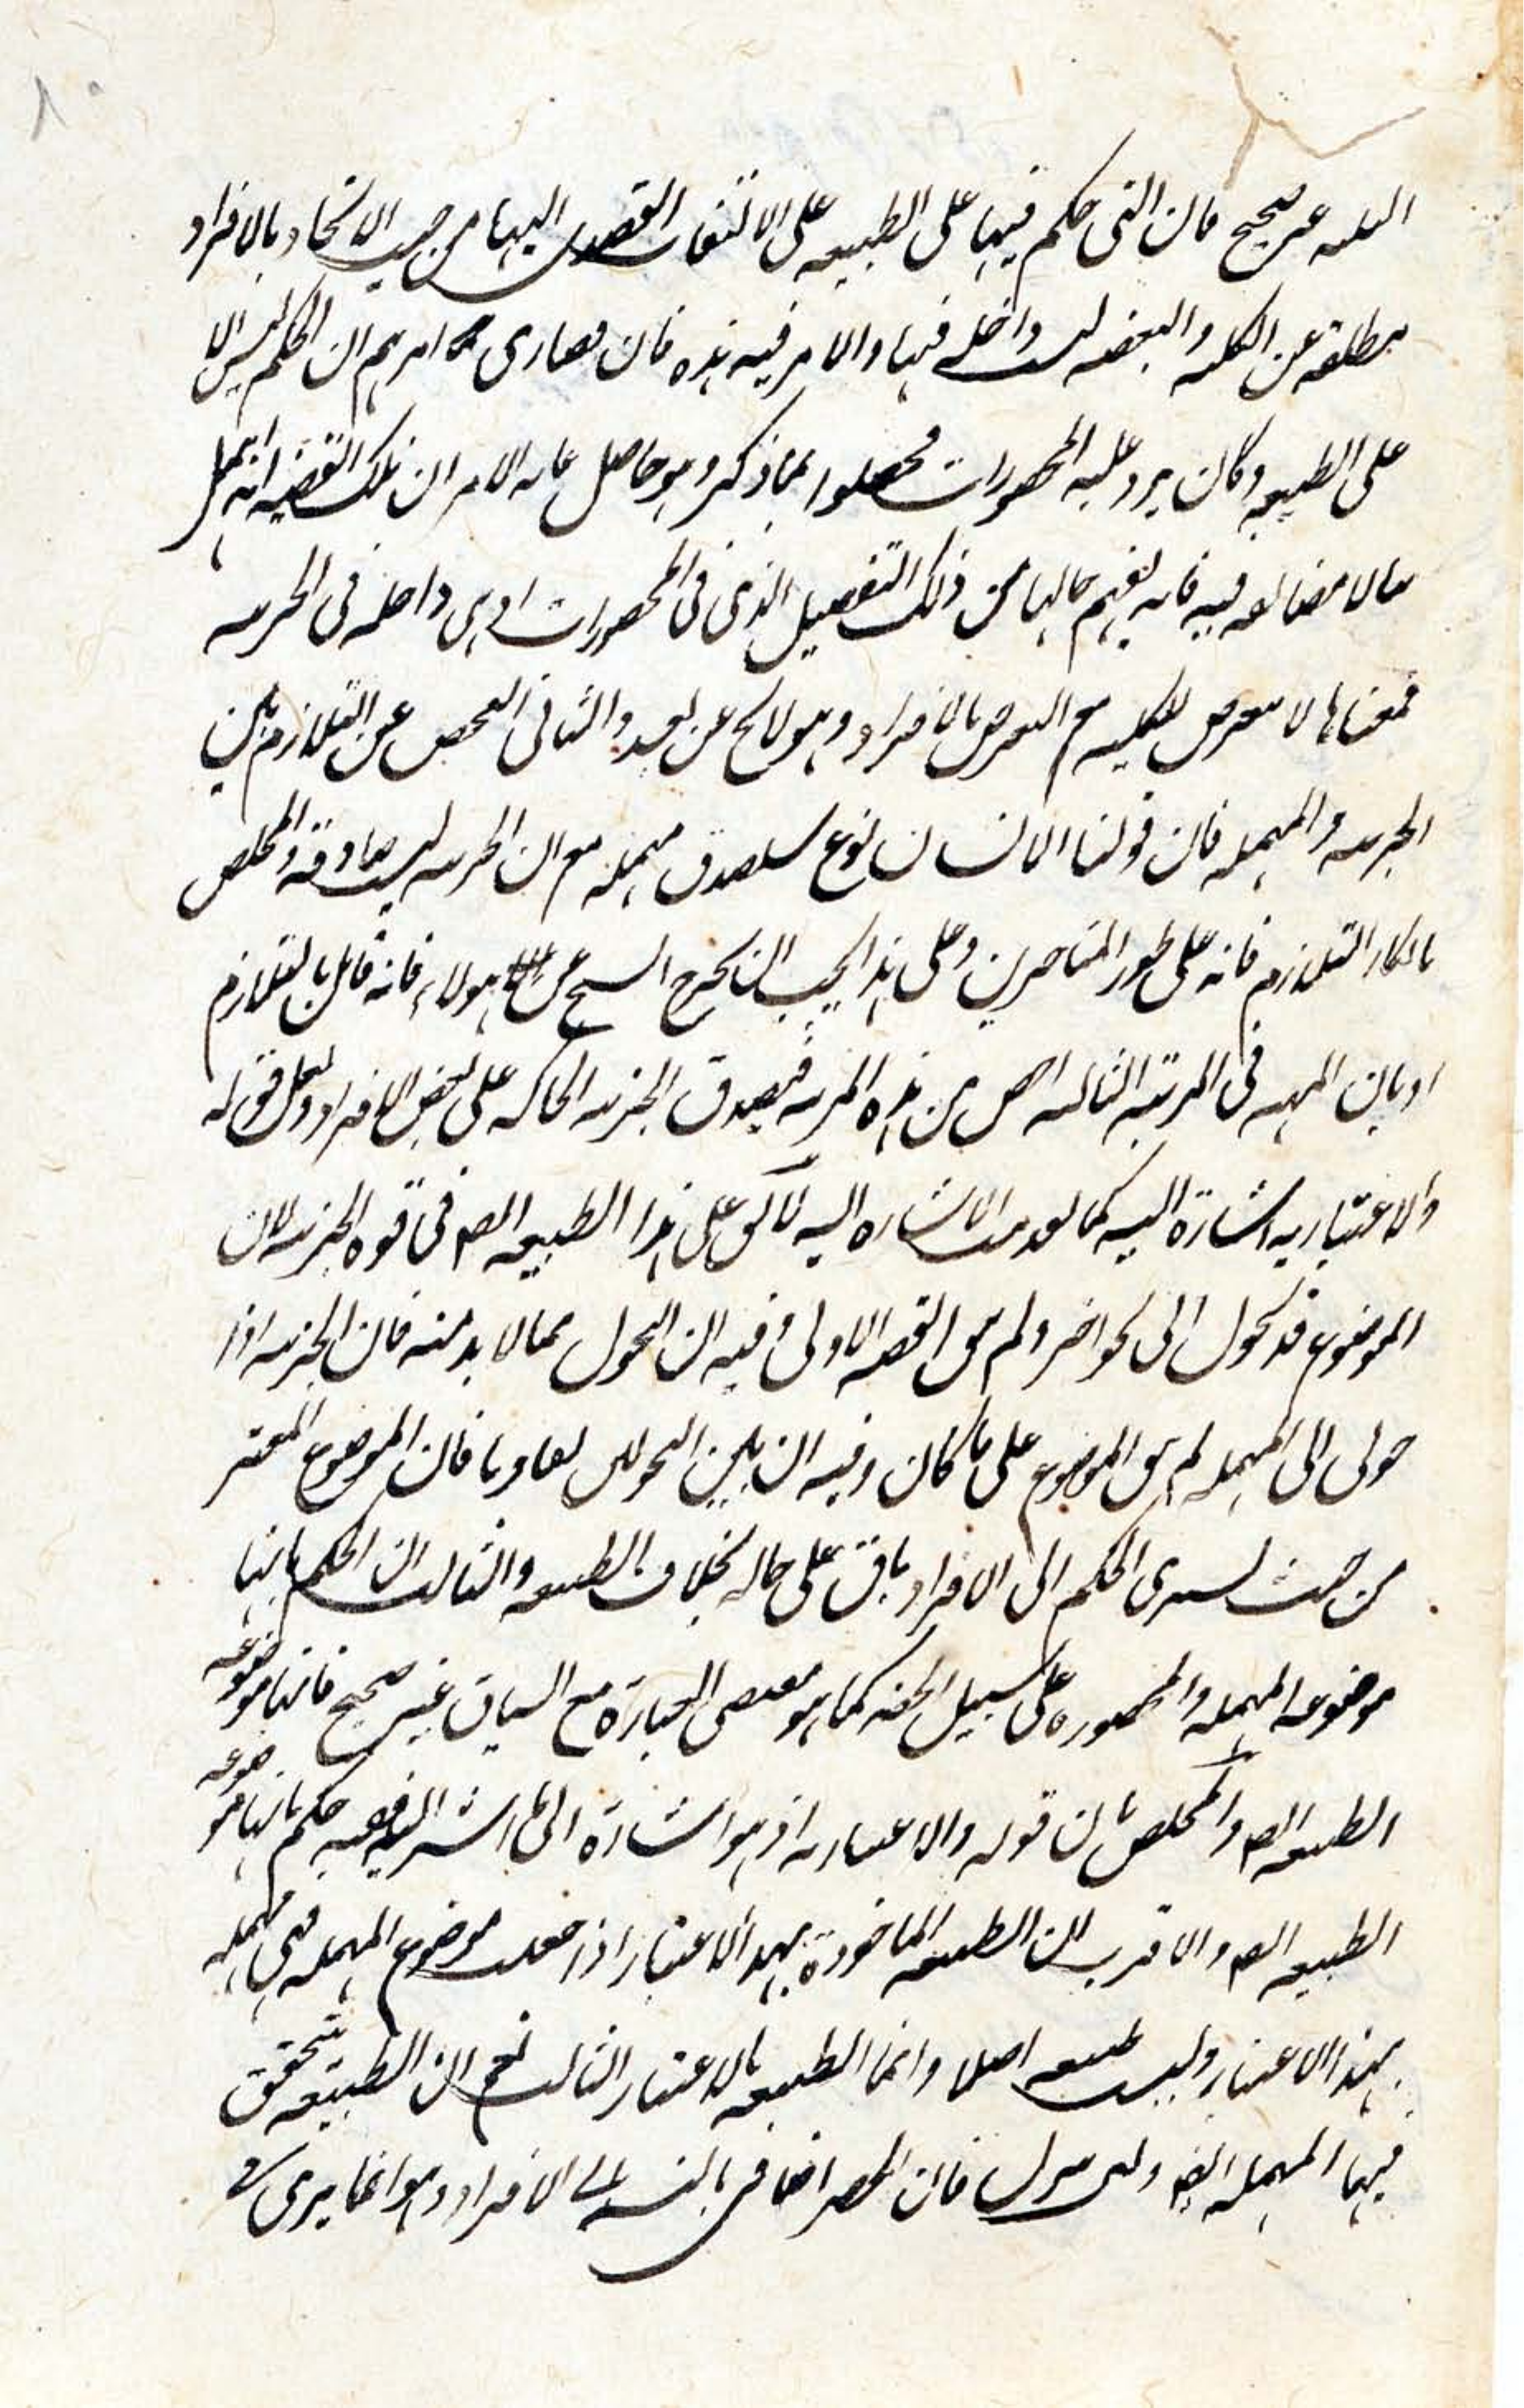 الثلثه غير صحيح فان التى حكم فيها على الطبيعه على الالتفات القصدى اليها من حيث الاتحاد بالافراد
مطلقه عن الكليه والبعضيه ليست داخله فيها والامر فيه هذه فان قصارى امرهم ان الحكم ليس الا
على الطبيعه وكان يرد عليه المحصورات فحصلوا بما ذكر وهو حاصل الامر ان تلك القضيه انه يهمل
مالا مضايقه فيه فانه يفهم حالها من ذلك التفصيل الذى فى المحصورات او هى داخله فى الجزئيه
فمعناها لا تعرض للكليه مع التعرض بالافراد وهو لائح عن بعد والثانى الفحص عن التلازم بين
الجزئيه والمهمله فان قولنا الانسان نوع يصدق مهمله مع ان الجزئيه ليست صادقه والمخلص
بانكار التلازم فانه على طور المتاخرين وعلى هذا يجب ان يخرج الشيخ عن هولاء فانه قائل بالتلازم
او بان المهيه فى المرتبه الثالثه اخص من هذه المرتبه فيصدق الجزئيه الحاكمه على بعض الافراد ولعل قوله
والاعتباريه اشارة اليه كما الاشاره اليه لا يكون على هذا الطبيعيه ايضا فى قوه الجزئيه لان
الموضوع قد تحول الى نحو اخر ولم يبق القضيه الاولى وفيه ان التحول مما لا بد منه فان الجزئيه اذا
حولى الى المهمله لم يبق الموضوع على ما كان وفيه ان بين التحولين تفاوتا فان الموضوع المعتبر
من حيث يسرى الحكم الى الافراد باق على حاله بخلاف الطبيعيه والثالث ان الحكم بانها
موضوعه المهمله والمحصوره على سبيل الحصر كما هو مقتضى العبارة مع السياق غير صحيح فانها موضوعه
الطبيعيه ايضا والمخلص بان قوله والاعتباريه اذ هو اشارة الى ما اشير اليه ففيه حكم بانها موضوعه
الطبيعيه ايضا والاقرب ان الطبيعه الماخوذة بهذا الاعتبار اذا جعلت موضوع المهمله فهى مهمله
بهذا الاعتبار وليست طبيعيه اصلا وانما الطبيعيه بالاعتبار الثالث نعم ان الطبيعيه يتحقق
فيها المهمله ايضا ولئن نزل فان الحصر اضافى بالنسبه الى الافراد وهو انما يرى